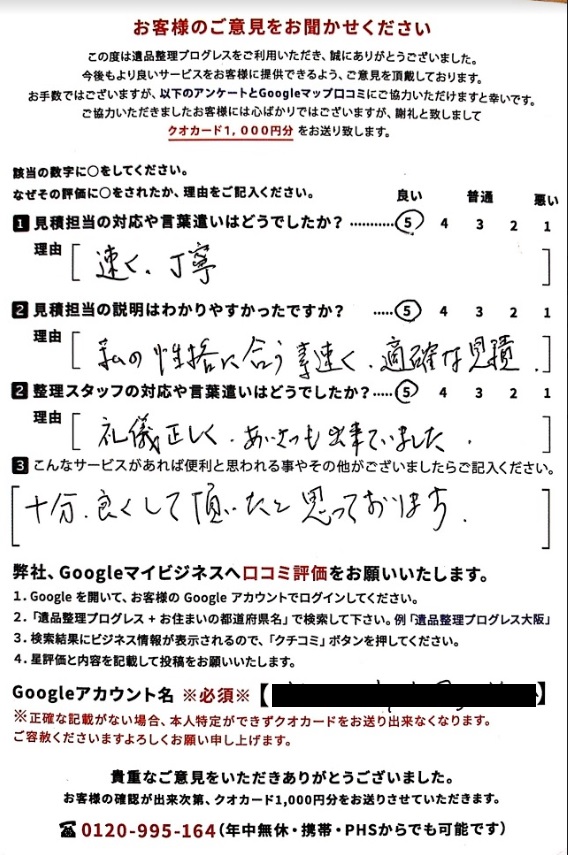 お客様のご意見をお聞かせください
この度は遺品整理プログレスをご利用いただき、誠にありがとうございました。
今後もより良いサービスをお客様に提供できるよう、ご意見を頂戴しております。
お手数ではございますが、以下のアンケートとGoogleマップ口コミにご協力いただけますと幸いです。
ご協力いただきましたお客様には心ばかりではございますが、謝礼と致しまして
クオカード1,000円分をお送り致します。
該当の数字に○をしてください。
なぜその評価に○をされたか、理由をご記入ください。 良い 普通 悪い
1 見積担当の対応や言葉遣いはどうでしたか？ ・・・・・・・・・・・ 5 4 3 2 1
理由 [ 速く、丁寧 ]
2 見積担当の説明はわかりやすかったですか？ ・・・・・ 5 4 3 2 1
理由 [ 私の性格に合う素速く、適確な見積. ]
2 整理スタッフの対応や言葉遣いはどうでしたか？・・・・・ 5 4 3 2 1
理由 [ 礼儀正しく、あいさつも出来ていました. ]
3 こんなサービスがあれば便利と思われる事やその他がございましたらご記入ください。
[ 十分、良くして頂いたと思っております. ]
弊社、Googleマイビジネスへ口コミ評価をお願いいたします。
1. Google を開いて、お客様の Google アカウントでログインしてください。
2.「遺品整理プログレス + お住まいの都道府県名」で検索して下さい。例「遺品整理プログレス大阪」
3. 検索結果にビジネス情報が表示されるので、「クチコミ」ボタンを押してください。
4. 星評価と内容を記載して投稿をお願いいたします。
Googleアカウント名 ※必須※【 】
※正確な記載がない場合、本人特定ができずクオカードをお送り出来なくなります。
ご容赦くださいますよろしくお願い申し上げます。
貴重なご意見をいただきありがとうございました。
お客様の確認が出来次第、クオカード1,000円分をお送りさせていただきます。
☎0120-995-164(年中無休・携帯・PHSからでも可能です)